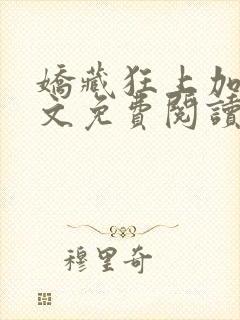 嬌藏狂上加
文免費閱讀
穆里奇